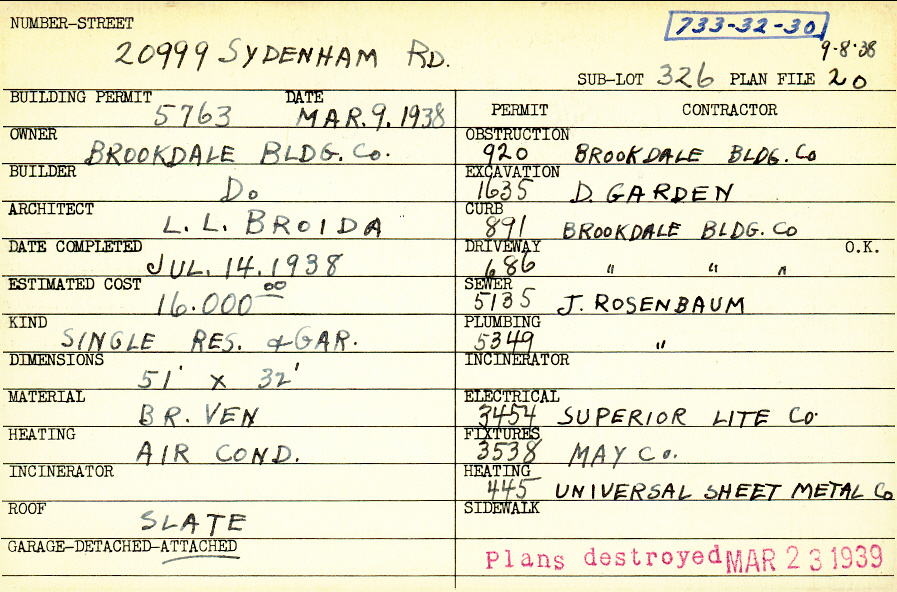 NUMBER-STREET
733-32-30
20999 SYDENHAM RD.
9-8-38
SUB-LOT 326 PLAN FILE 20
BUILDING PERMIT DATE
5763 MAR. 9. 1938
OWNER
BROOKDALE BLDG. Co.
BUILDER
Do
ARCHITECT
L. L. BROIDA
DATE COMPLETED
JUL. 14. 1938
ESTIMATED COST
16.000 00
KIND
SINGLE RES. & GAR.
DIMENSIONS
51' x 32'
MATERIAL
BR. VEN
HEATING
AIR COND.
INCINERATOR
ROOF
SLATE
GARAGE-DETACHED-ATTACHED
PERMIT CONTRACTOR
OBSTRUCTION
920 BROOKDALE BLDG. Co
EXCAVATION
1635 D. GARDEN
CURB
891 BROOKDALE BLDG. CO
DRIVEWAY O.K.
686 " " "
SEWER
5135 J. ROSENBAUM
PLUMBING
5349 "
INCINERATOR
ELECTRICAL
3454 SUPERIOR LITE Co.
FIXTURES
3538 MAY Co.
HEATING
445 UNIVERSAL SHEET METAL Co
SIDEWALK
Plans destroyed MAR 23 1939